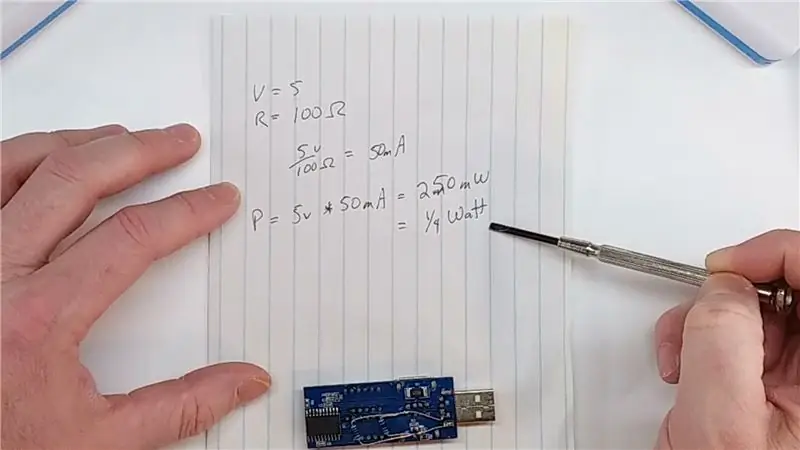 V = 5
R = 100Ω
5v/100Ω = 50mA
P = 5v * 50mA = 250mW
= 1/4 Watt